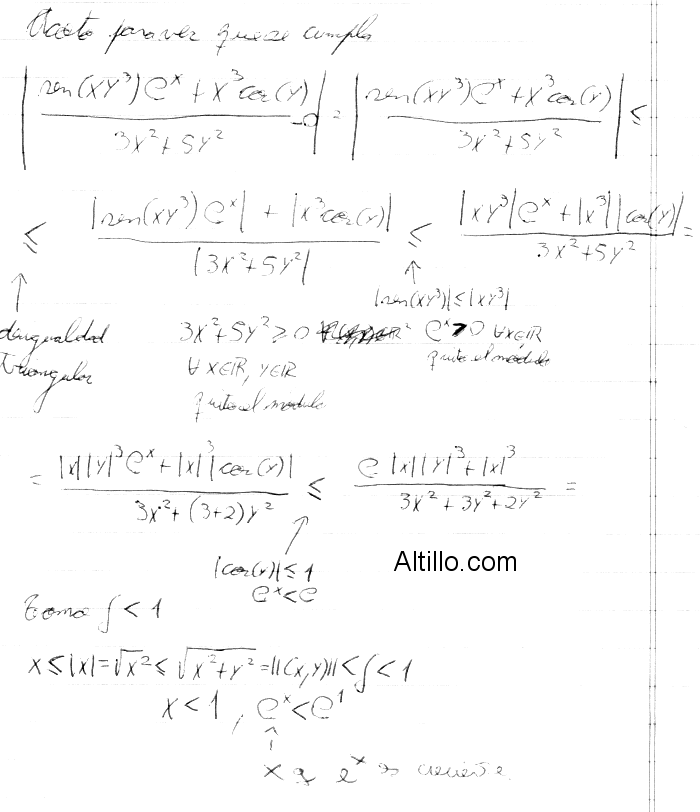 Acoto para ver que se cumpla
| (sen(xy³)e^x + x³cos(y)) / (3x²+5y²) - 0 | = | (sen(xy³)e^x + x³cos(y)) / (3x²+5y²) | ≤
≤ (|sen(xy³)e^x| + |x³cos(y)|) / |3x²+5y²| ≤ (|xy³|e^x + |x³||cos(y)|) / (3x²+5y²) =
↑ ↑
|sen(xy³)| ≤ |xy³|
desigualdad 3x²+5y² ≥ 0 e^x > 0 ∀x∈ℝ
triangular ∀x∈ℝ, y∈ℝ quito el módulo
quito el modulo
= (|x||y|³e^x + |x|³|cos(y)|) / (3x²+(3+2)y²) ≤ (e|x||y|³+|x|³) / (3x²+3y²+2y²) =
|cos(y)| ≤ 1
e^x < e
Altillo.com
Tomo ∫ < 1
x ≤ |x| = √x² ≤ √(x²+y²) = ||(x,y)|| < ∫ < 1
x < 1, e^x < e^1
↑
x q e^x es creciente